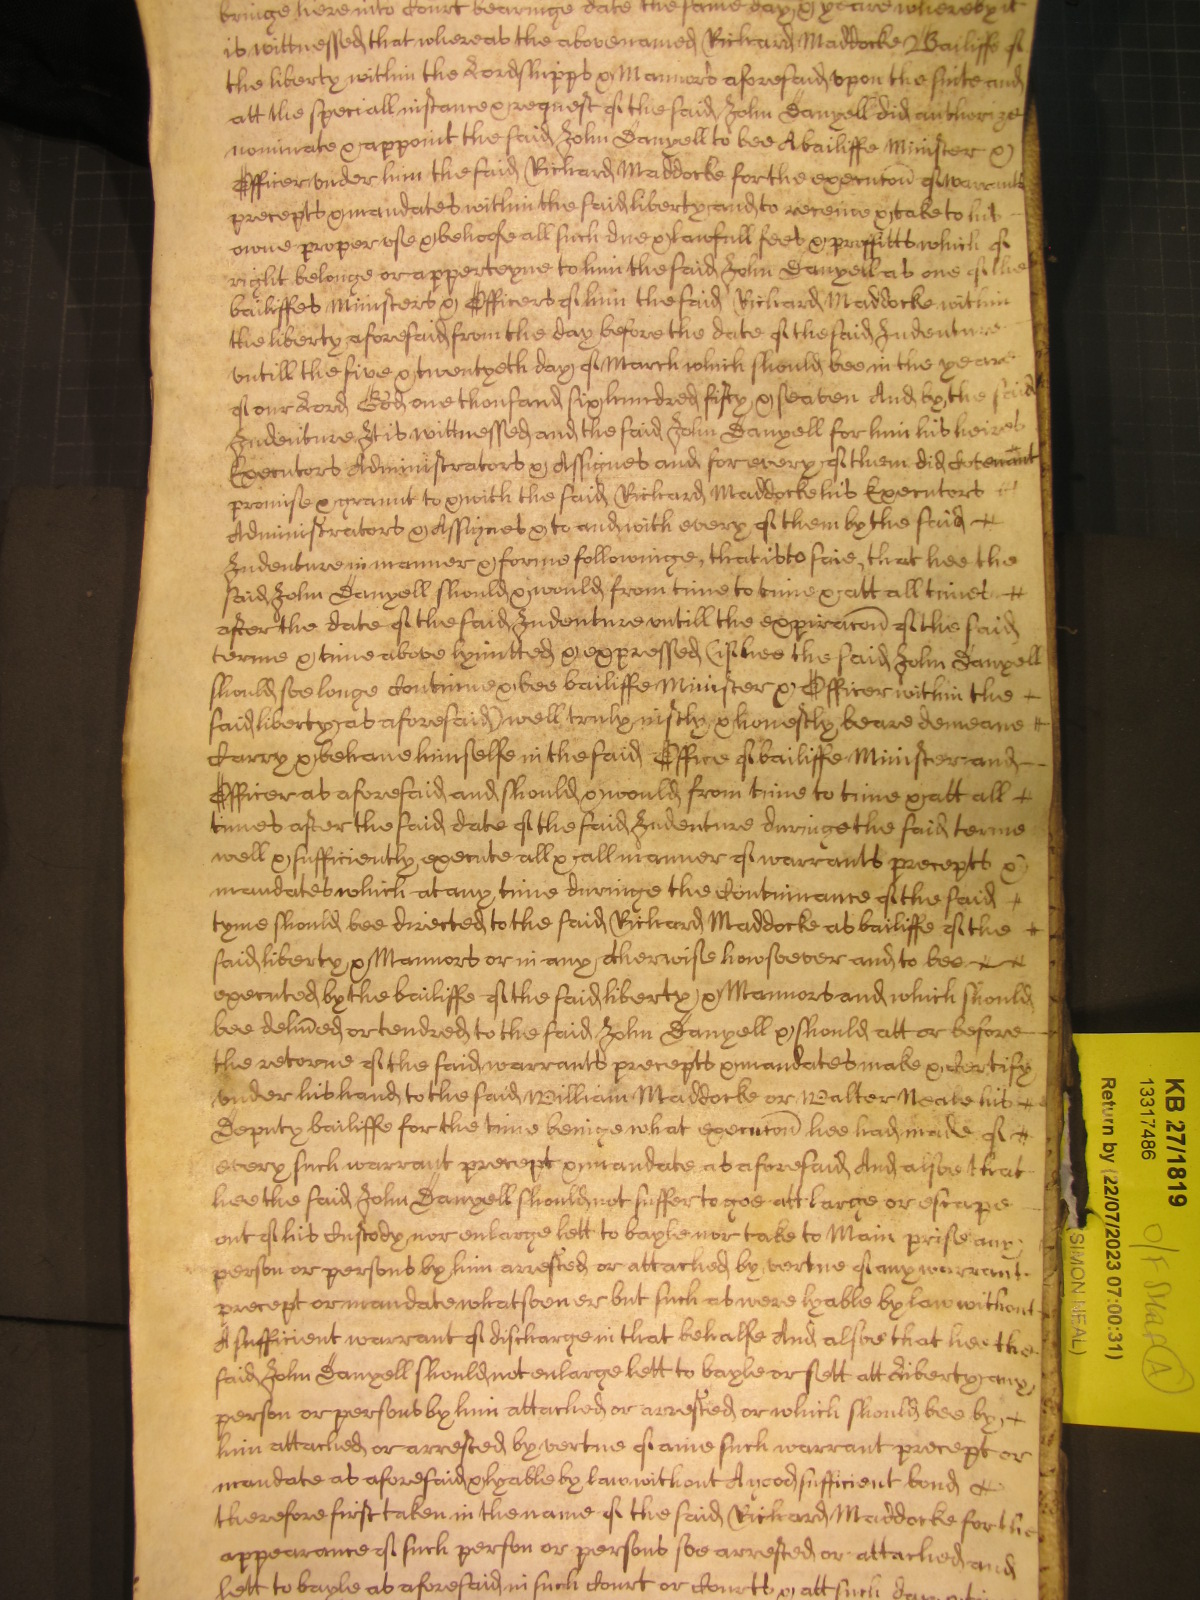 bringe here into Court bearinge date the same day & yeare whereby it
is wittnessed that whereas the abovenamed Richard Maddocke Bailiffe of
the liberty within the Lordshipps & Mannors aforesaid upon the suite and
att the speciall instance & request of the said John Danyell did authorize
nominate & appoint the said John Danyell to bee A bailiffe Minister &
Officer under him the said Richard Maddocke for the execucon of warrants
precepts & mandates within the said liberty and to receive & take to his
owne proper use & behoofe all such due & lawfull fees & proffitts which of
right belonge or apperteyne to him the said John Danyell as one of the
bailiffes Ministers & Officers of him the said Richard Maddocke within
the liberty aforesaid from the day before the date of the said Indenture
untill the five & twentyeth day of March which should bee in the yeare
of our Lord God one thousand six hundred fifty & seaven And by the said
Indenture It is wittnessed and the said John Danyell for him his heires
Executors Administrators & Assignes and for every of them did Covenant
promise & graunt to & with the said Richard Maddocke his Executors
Administrators & Assignes & to and with every of them by the said
Indenture in manner & forme followinge, that is to saie, that hee the
said John Danyell should & would from time to time & att all times
after the date of the said Indenture untill the expiracon of the said
terme & time above lymitted & expressed (if hee the said John Danyell
should soe longe Continue & bee bailiffe Minister & Officer within the
said liberty as aforesaid) well truly iustly & honestly beare demeane
Carry & behave himselfe in the said Office of bailiffe Minister and
Officer as aforesaid and should & would from time to time & att all
times after the said date of the said Indenture duringe the said terme
well & sufficiently execute all & all manner of warrants precepts &
mandates which at any time duringe the Continuance of the said
tyme should bee directed to the said Richard Maddocke as bailiffe of the
said liberty & Mannors or in any otherwise howsoever and to bee
executed by the bailiffe of the said liberty & Mannors and which should
bee delived or tendred to the said John Danyell & should att or before
the retorne of the said warrants precepts & mandates make & Certify
under his hand to the said William Maddocke or Walter Neale his
Deputy bailiffe for the time beinge what execucon hee had made of
every such warrant precept & mandate as aforesaid And alsoe that
hee the said John Danyell should not suffer to goe att large or escape
out of his Custody nor enlarge lett to bayle nor take to Main prise any
person or persons by him arrested or attached by vertue of any warrant
precept or mandate whatsoever but such as were lyable by law without
A sufficient warrant of discharge in that behalfe And alsoe that hee the
said John Danyell should not enlarge lett to bayle or sett att liberty any
person or persons by him attached or arrested or which should bee by
him attached or arrested by vertue of anie such warrant precept or
mandate as aforesaid & lyable by law without A good sufficient bond
therefore first taken in the name of the said Richard Maddocke for the
appearance of such person or persons soe arrested or attached and
lett to bayle as aforesaid in such Court or Courts & att such
KB 27/1819
13317486
Return by (22/07/2023 07:00:31)
(SIMON NEAL)